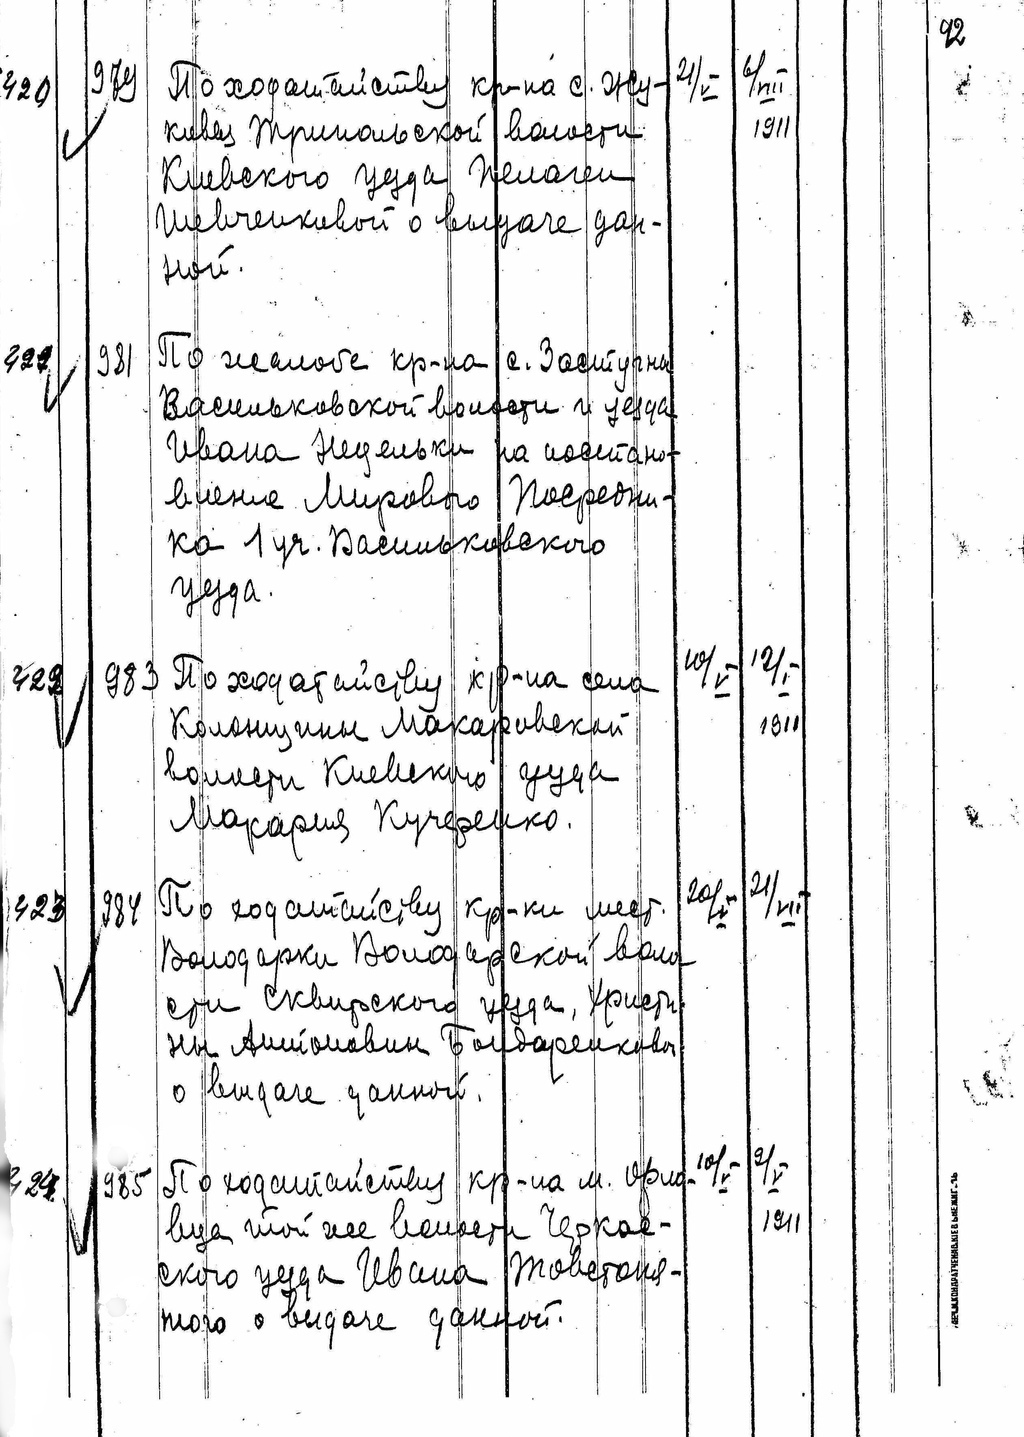 92
420 979 По ходатайству кр-на с. Жу- 21/V 6/VIII
ковец Трипольской волости 1911
Киевского уезда Пелагеи
Шевченковой о выдаче дан-
ной.
981 По жалобе кр-на с. Застугна
Васильковской волости и уезда
Ивана Недельки на постано-
вление Мирового Посредни-
ка 1 уч. Васильковского
уезда.
422 983 По ходатайству кр-на села 10/V 12/I
Колонщины Макаровской 1911
волости Киевского уезда
Макария Кучеренко.
423 984 По ходатайству кр-ки мест. 20/V 21/VII
Володарки Володарской воло
сти Сквирского уезда, Христи
ны Антоновны Бондаренковой
о выдаче данной.
424 985 По ходатайству кр-на м. Орло- 10/V 9/V
вца той же волости Черкас- 1911
ского уезда Ивана Товстопя-
того о выдаче данной.